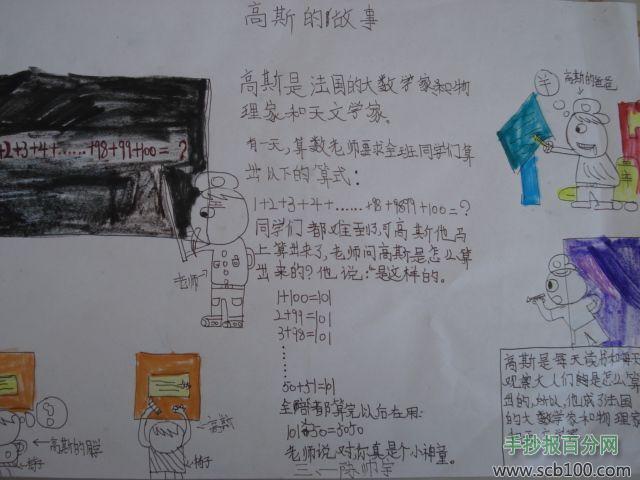 高斯的故事
高斯是法国的大数学家和物
理家和天文学家。
有一天，算数老师要求全班同学们算
出以下的算式：
1+2+3+4+……+98+9899+100=?
同学们都难到了,可高斯他马
上算出来了,老师问高斯是怎么算
出来的？他说："是这样的。
1+100=101
2+99=101
3+98=101
50+51=101
全陪都算完以后在用：
101×50=5050
老师说,对,你真是个小神童。
+2+3+4+……+98+99+100=?
老师
高斯的爸爸
高斯的同学
椅子
高斯
椅子
高斯是每天读书和每天
观察大人们的是怎么算
出的,所以,他成了法国
的大数学家和物理家
手抄报百分网
www.scb100.com